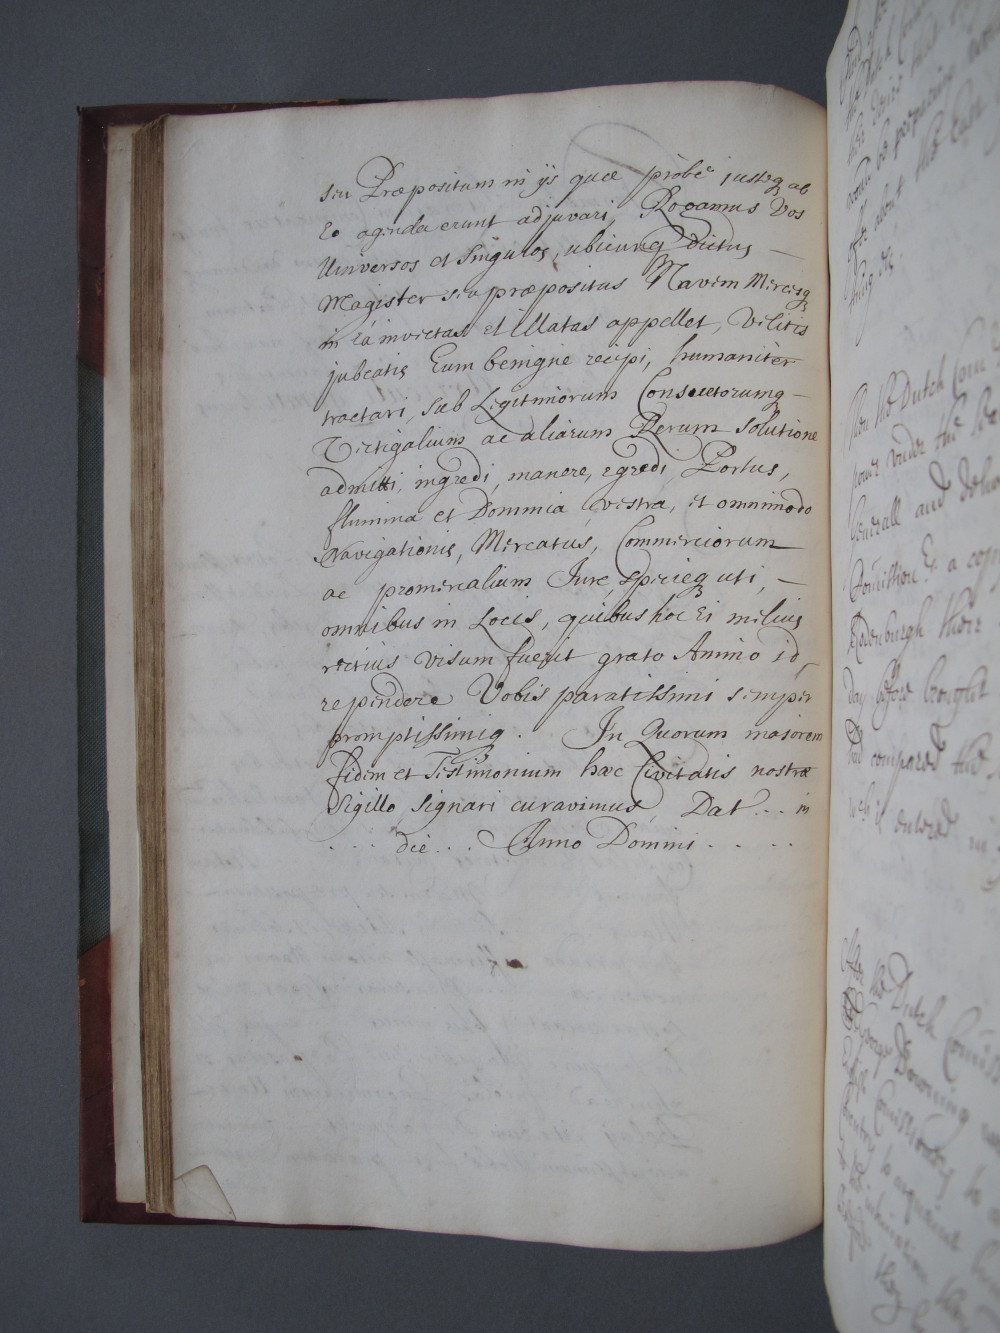 seu Præpositum in ijs quæ probe justeq ab
Eo agenda erunt adjuvari, Rogamus Vos
Universos et Singulos, ubicunq Dictus —
Magister seu præpositus Navem Mercesq
in eâ invectas et Illatas appellet, Velitis
jubeatis Eum benigne recipi, humaniter
tractari, sub Legitimorum Consuetorumq —
Vectigalium ac aliarum Rerum Solutione
admitti, ingredi, manere, egredi Portus,
flumina et Dominia vestra, et omnimodo
Navigationis, Mercatus, Commerciorum
ac promercalium Jure, specieq uti, —
omnibus in Locis, quibus hoc Ei melius
rectius visum fuerit grato Animo id
rependere Vobis paratissimi semper
promptissimiq. In Quorum maiorem
fidem et Testimonium hæc Civitatis nostræ
Sigillo Signari curavimus, Dat... in
.... die... Anno Domini.....
the Dutch
about the East
upon the Dutch Com
power under the
Generall and
Comission & a cop
Edenburgh their
day before brought
compared the
entered
the Dutch Comiss
George Downing
Comissioners to
they